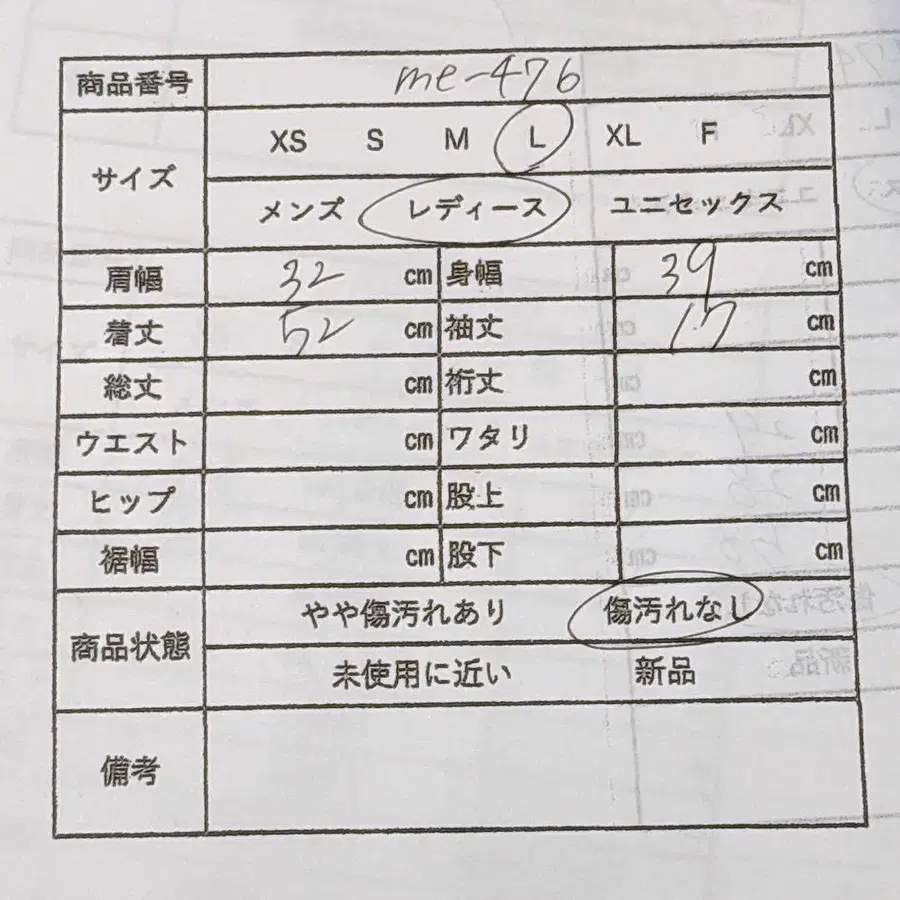 商品番号 me-476
サイズ XS S M L XL F
メンズ レディース ユニセックス
肩幅 32 cm 身幅 39 cm
着丈 52 cm 袖丈 17 cm
総丈 cm 裄丈 cm
ウエスト cm ワタリ cm
ヒップ cm 股上 cm
裾幅 cm 股下 cm
商品状態 やや傷汚れあり 傷汚れなし
未使用に近い 新品
備考